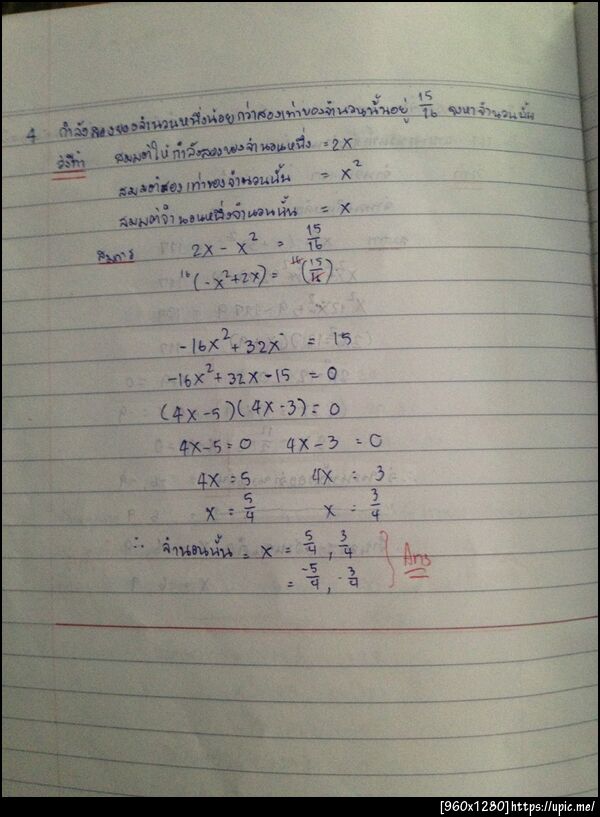 4 กำลังสองของจำนวนหนึ่งน้อยกว่าสองเท่าของจำนวนนั้นอยู่ 15/16 จงหาจำนวนนั้น
วิธีทำ สมมติให้กำลังสองของจำนวนหนึ่ง = 2x
สมมติสองเท่าของจำนวนนั้น = x²
สมมติจำนวนหนึ่งจำนวนนั้น = x
สมการ 2x - x² = 15/16
16(-x²+2x) = 16(15/16)
-16x²+32x = 15
-16x²+32x-15 = 0
(4x-5)(4x-3) = 0
4x-5=0 4x-3 =0
4x=5 4x = 3
x = 5/4 x = 3/4
∴ จำนวนนั้น = x = 5/4, 3/4
= -5/4, -3/4 Ans
[960x1280]https://upic.me/